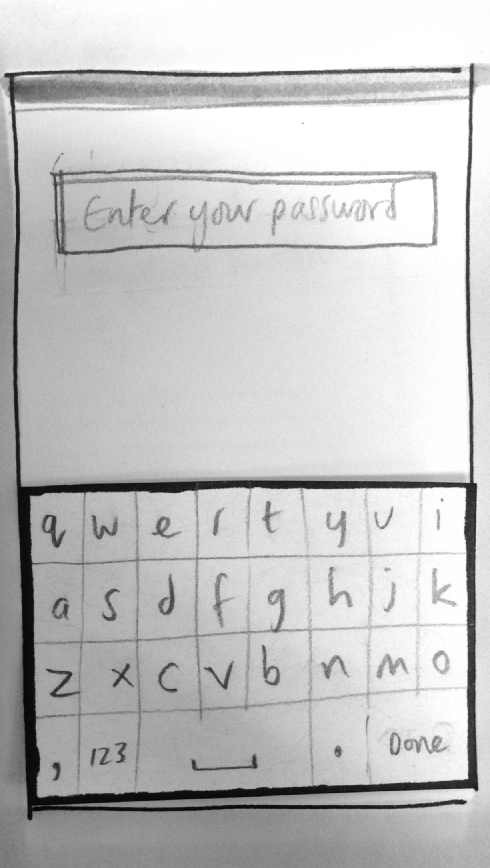 Enter your password
q w e r t y u i
a s d f g h j k
z x c v b n m o
, 123 . Done